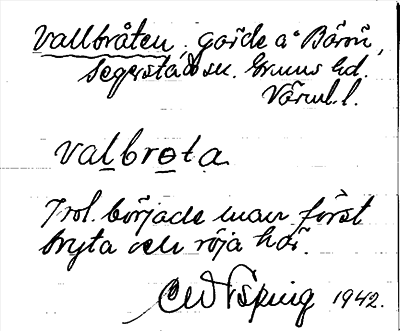 Vallbråten, gårde å Bärön,
Segerstad sn. Grums hd.
Värml. l.
valbrota
Trol. började man först
bryta och röja här.
1942.